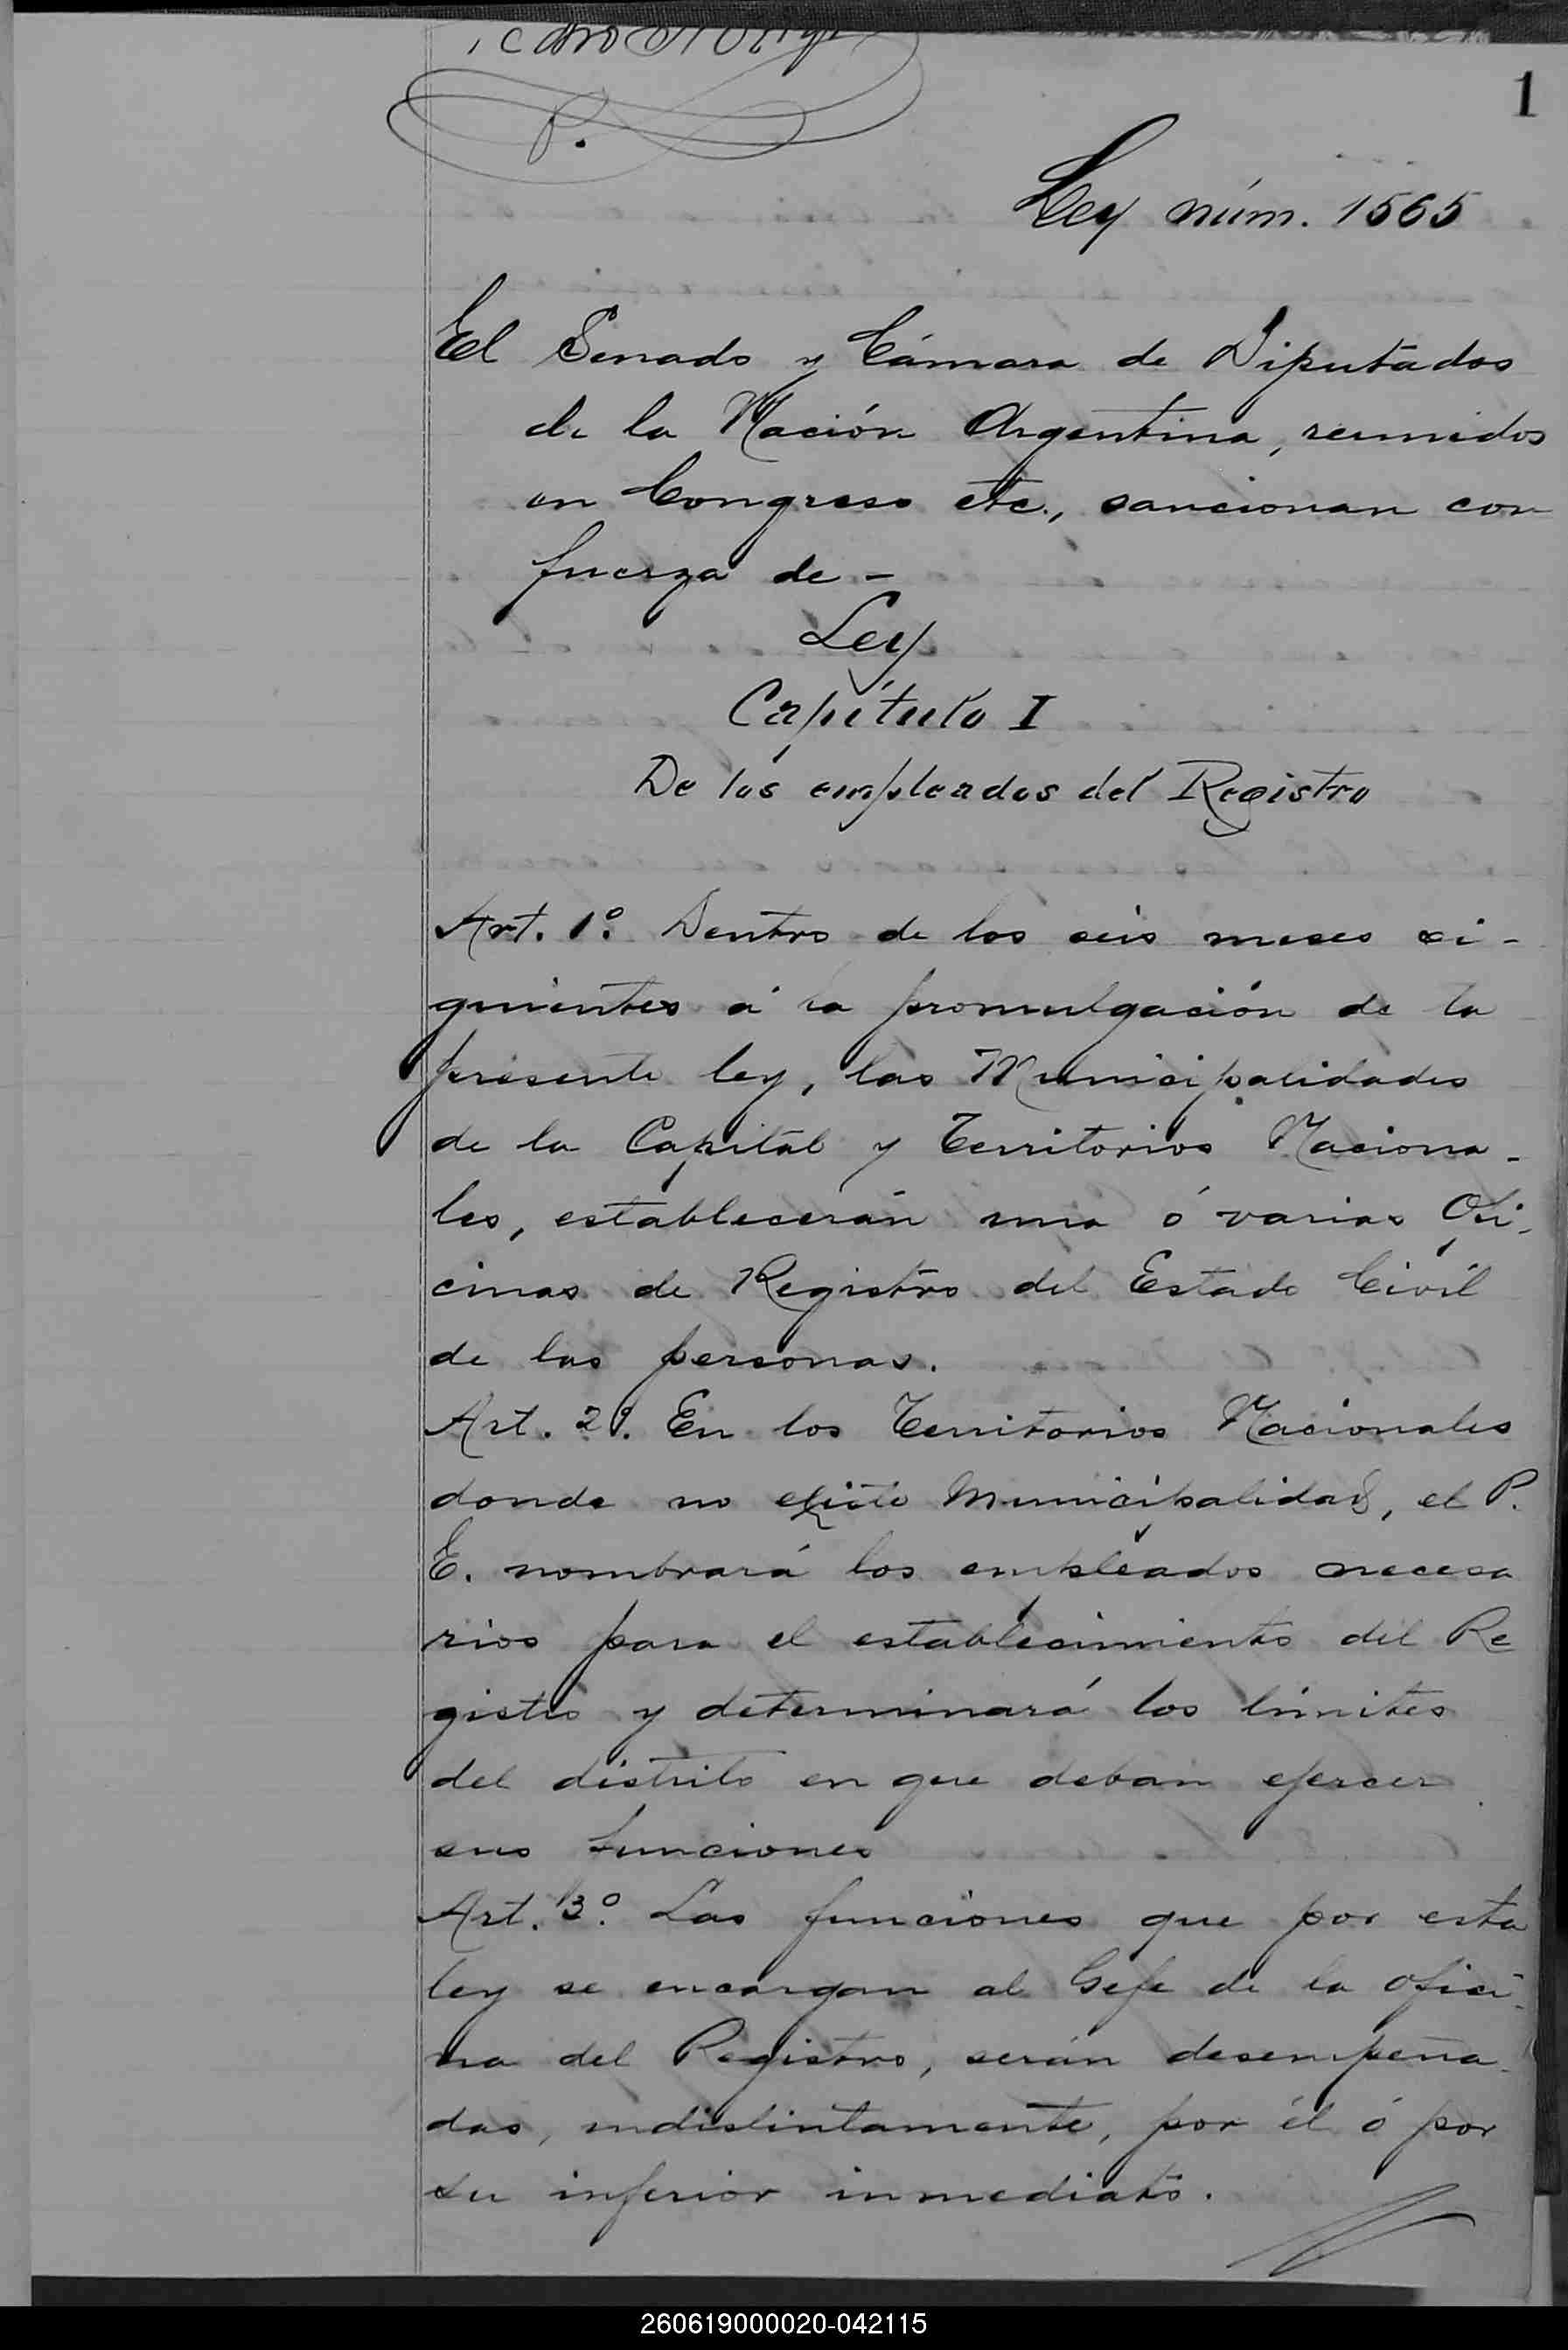 1
P.
Ley núm. 1565
El Senado y Cámara de Diputados
de la Nación Argentina, reunidos
en Congreso etc., sancionan con
fuerza de -
Ley
Capítulo I
De los empleados del Registro
Art. 1º. Dentro de los seis meses si-
guientes á la promulgación de la
presente ley, las Municipalidades
de la Capital y Territorios Naciona-
les, establecerán una ó varias Ofi-
cinas de Registro del Estado Civil
de las personas.
Art. 2º. En los Territorios Nacionales
donde no existe Municipalidad, el P.
E. nombrará los empleados necesa
rios para el establecimiento del Re
gistro y determinará los límites
del distrito en que deban ejercer
sus funciones
Art. 3º. Las funciones que por esta
ley se encargan al Gefe de la ofici-
na del Registro, serán desempeña-
das, indistintamente, por él ó por
su inferior inmediato.
260619000020-042115